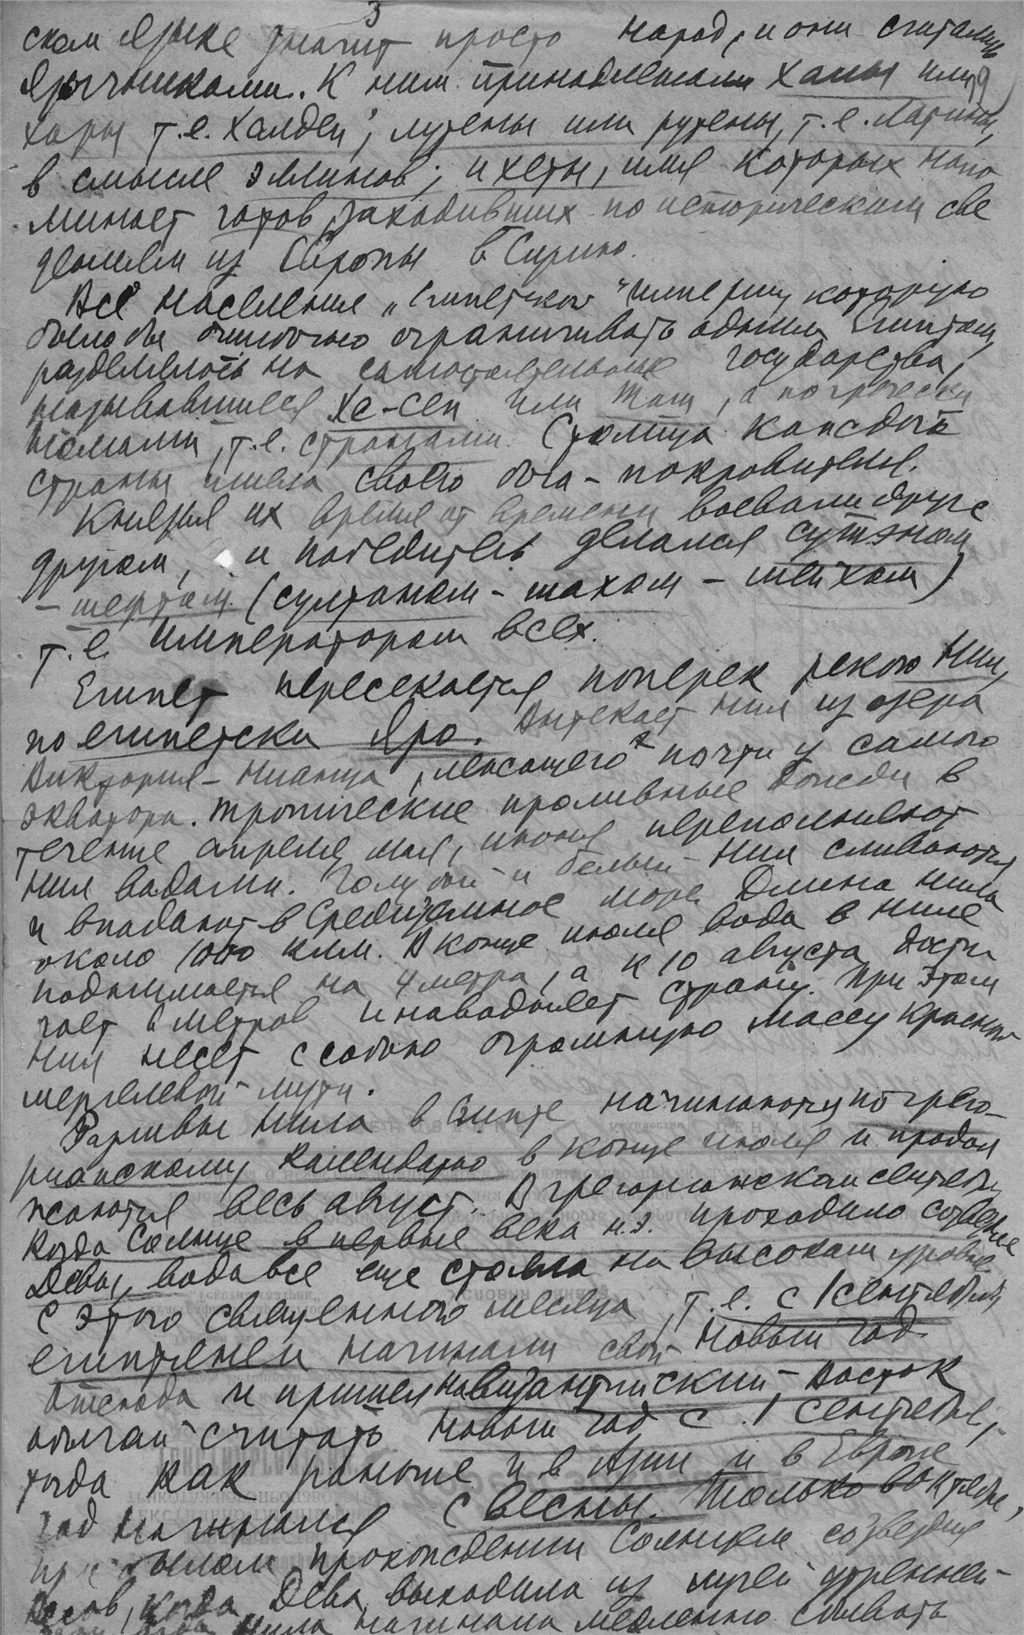 3
ском языке значит просто народ, и они считались
язычниками. К ним принадлежали ханы или
хары т.е. Халдеи; лутены или рутены, т.е. латины,
в смысле эллинов; и хеты, имя которых напо
минает готов, заходивших по историческим све
дениям из Европы в Сирию.
Всё население „Египетской" империи, которую
было бы ошибочно ограничивать одним Египтом,
разделялось на самостоятельные государства,
называвшиеся Хе-сеп или Тош, а по гречески
номами, т.е. странами. Столица каждой
страны имела своего бога-покровителя.
Князья их время от времени воевали друг с
другом, и победитель делался сутэном
- шефтом (султаном - шахом - шейхом)
т.е. императором всех.
Египет пересекается поперек рекою Нил,
по египетски Яро. Вытекает Нил из озера
Виктория-Нианца, лежащего почти у самого
экватора. Тропические проливные дожди в
течение апреля, мая, июня переполняют
Нил водами. Голубой и белый Нил сливаются
и впадают в Средиземное море. Длина Нила
около 1000 клм. В конце июля вода в Ниле
поднимается на 4 метра, а к 10 августа дости
гает 6 метров и наводняет страну. При этом
Нил несет с собою огромную массу красной
мергелевой мути.
Разливы Нила в Египте начинаются по грего-
рианскому календарю в конце июля и продол
жаются весь август. В грегорианском сентябре,
когда Солнце в первые века н.э. проходило созвездие
Девы, вода все еще стояла на высоком уровне
С этого священного месяца, т.е. с 1 сентября
египтяне и начинали свой новый год.
Отсюда и пришел на византийский Восток
обычай считать Новый год с 1 сентября,
тогда как раньше и в Азии и в Европе
год начинался с весны. Только в октябре,
при былом прохождении Солнцем созвездия
Весов, когда Дева выходила из лучей утренней
Нила начинала медленно сбывать